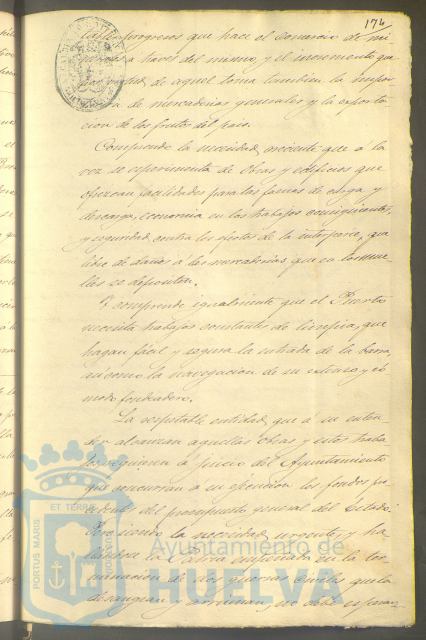 174
progresos que hace el comercio de mi
a través del mismo, y el incremento que
de aquel toma tambien la impor
de mercaderias generales y la exporta
cion de los frutos del país.
Comprende la necesidad, creciente que a la
vez se experimenta de obras y edificios que
ofrezcan facilidades para las faenas de carga y
descarga, economia en los trabajos consiguientes,
y seguridad contra los efectos de la intemperie, que
libre de daños a las mercaderias que en los mue
lles se depositen.
Y comprende igualmente que el Puerto
necesita trabajos constantes de limpieza, que
hagan fácil y segura la entrada de la barra,
así como la navegacion de su estenso y có
modo fondeadero.
La respetable entidad, que á su enten
der alcanzan aquellas obras y estos traba
jos, exigieron á juicio del Ayuntamiento
que concurrian a su ejecucion los fondos
del presupuesto general del Estado.
Pero siendo la necesidad urgente, y ha
la Patria empeñada en la ter
minacion de dos guerras civiles que la
desangran y arruinan, no debe esperar
PORTUS MARIS
ET TERRAE
CUSTODIA
Ayuntamiento de
HUELVA